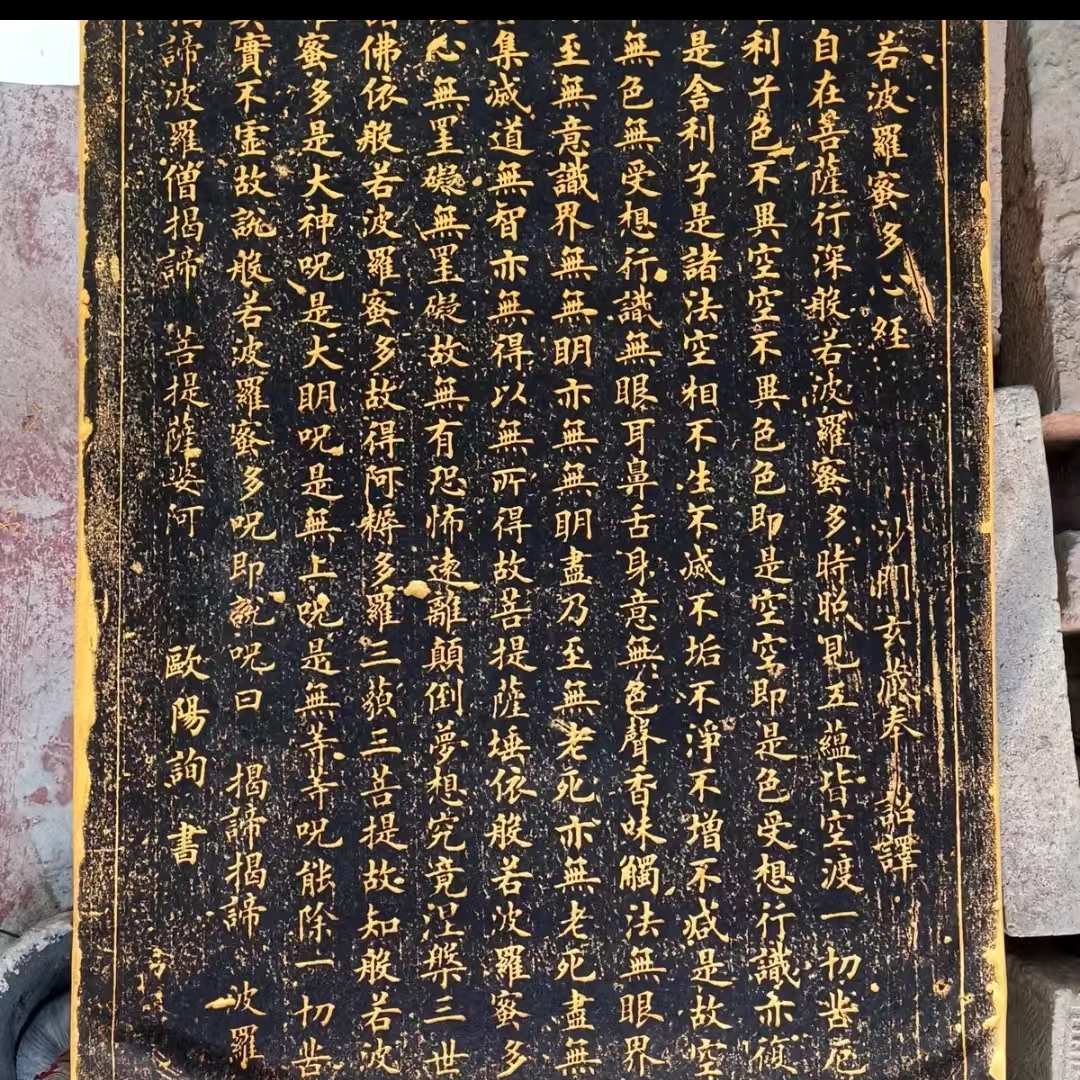 若波羅蜜多心經 沙門玄奘奉 詔譯
自在菩薩行深般若波羅蜜多時照見五蘊皆空渡一切苦厄
利子色不異空空不異色色即是空空即是色受想行識亦復
是舍利子是諸法空相不生不滅不垢不淨不增不減是故空
無色無受想行識無眼耳鼻舌身意無色聲香味觸法無眼界
至無意識界無無明亦無無明盡乃至無老死亦無老死盡無
集滅道無智亦無得以無所得故菩提薩埵依般若波羅蜜多
心無罣礙無罣礙故無有恐怖遠離顛倒夢想究竟涅槃三世
佛依般若波羅蜜多故得阿耨多羅三藐三菩提故知般若波
蜜多是大神呪是大明呪是無上呪是無等等呪能除一切苦
實不虛故說般若波羅蜜多呪即說呪曰 揭諦揭諦 波羅
諦波羅僧揭諦 菩提薩婆訶 歐陽詢 書